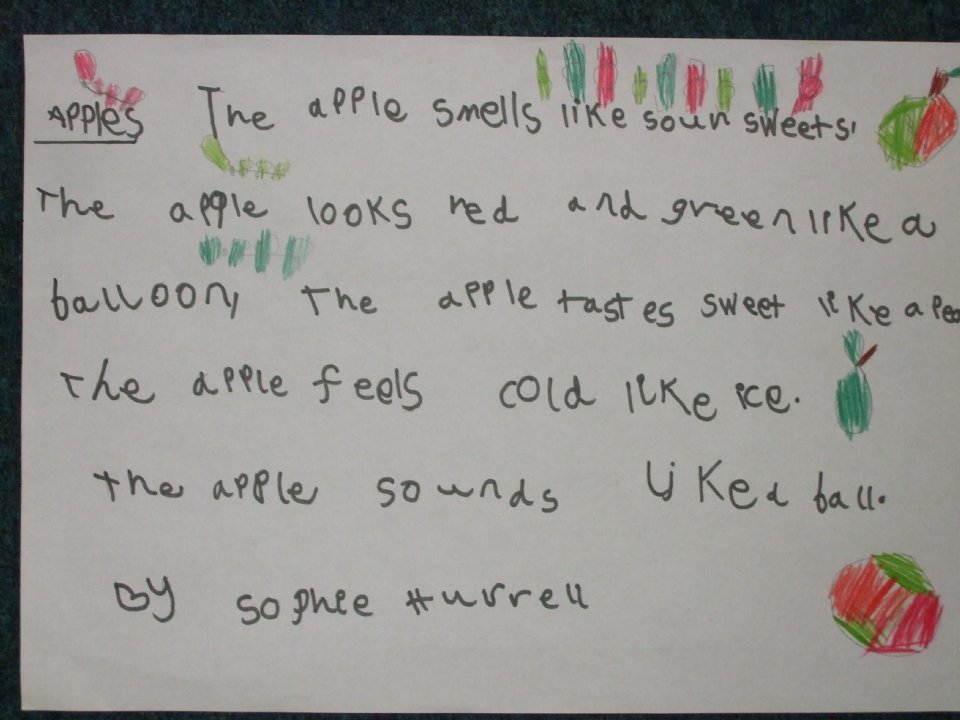 APPles The apple smells like sour sweets.
The apple looks red and green like a
balloon, The apple tastes sweet like a pea
The apple feels cold like ice.
the apple sounds like a ball.
By Sophie Hurrell